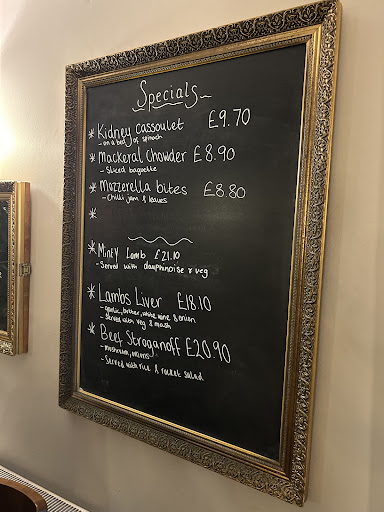 Specials
* Kidney cassoulet £9.70
- on a bed of spinach
* Mackeral Chowder £8.90
- Sliced baguette
* Mozzerella bites £8.80
- Chilli jam & leaves
*
* Minty Lamb £21.10
- Served with dauphinoise & veg
* Lambs Liver £18.10
- garlic, butter, white wine & onion
- Served with veg & mash
* Beef Stroganoff £20.90
- mushroom, onions
- Served with rice & rocket salad